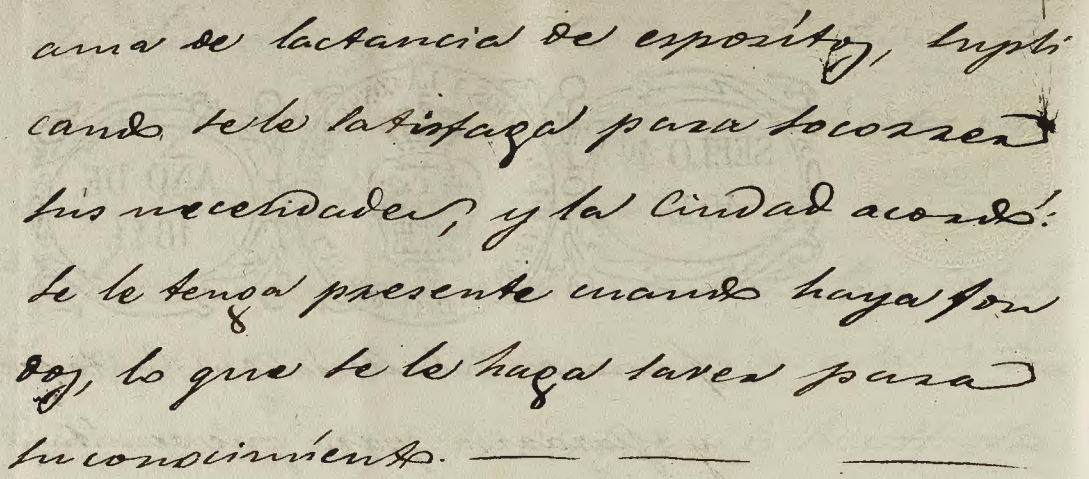 ama de lactancia de esposítos, supli
cando se le satisfaga para socorrer
sus necesidades, y la Ciudad acordó:
se le tenga presente cuando haya fon
dos, lo que se le haga saver para
su conocimiento.